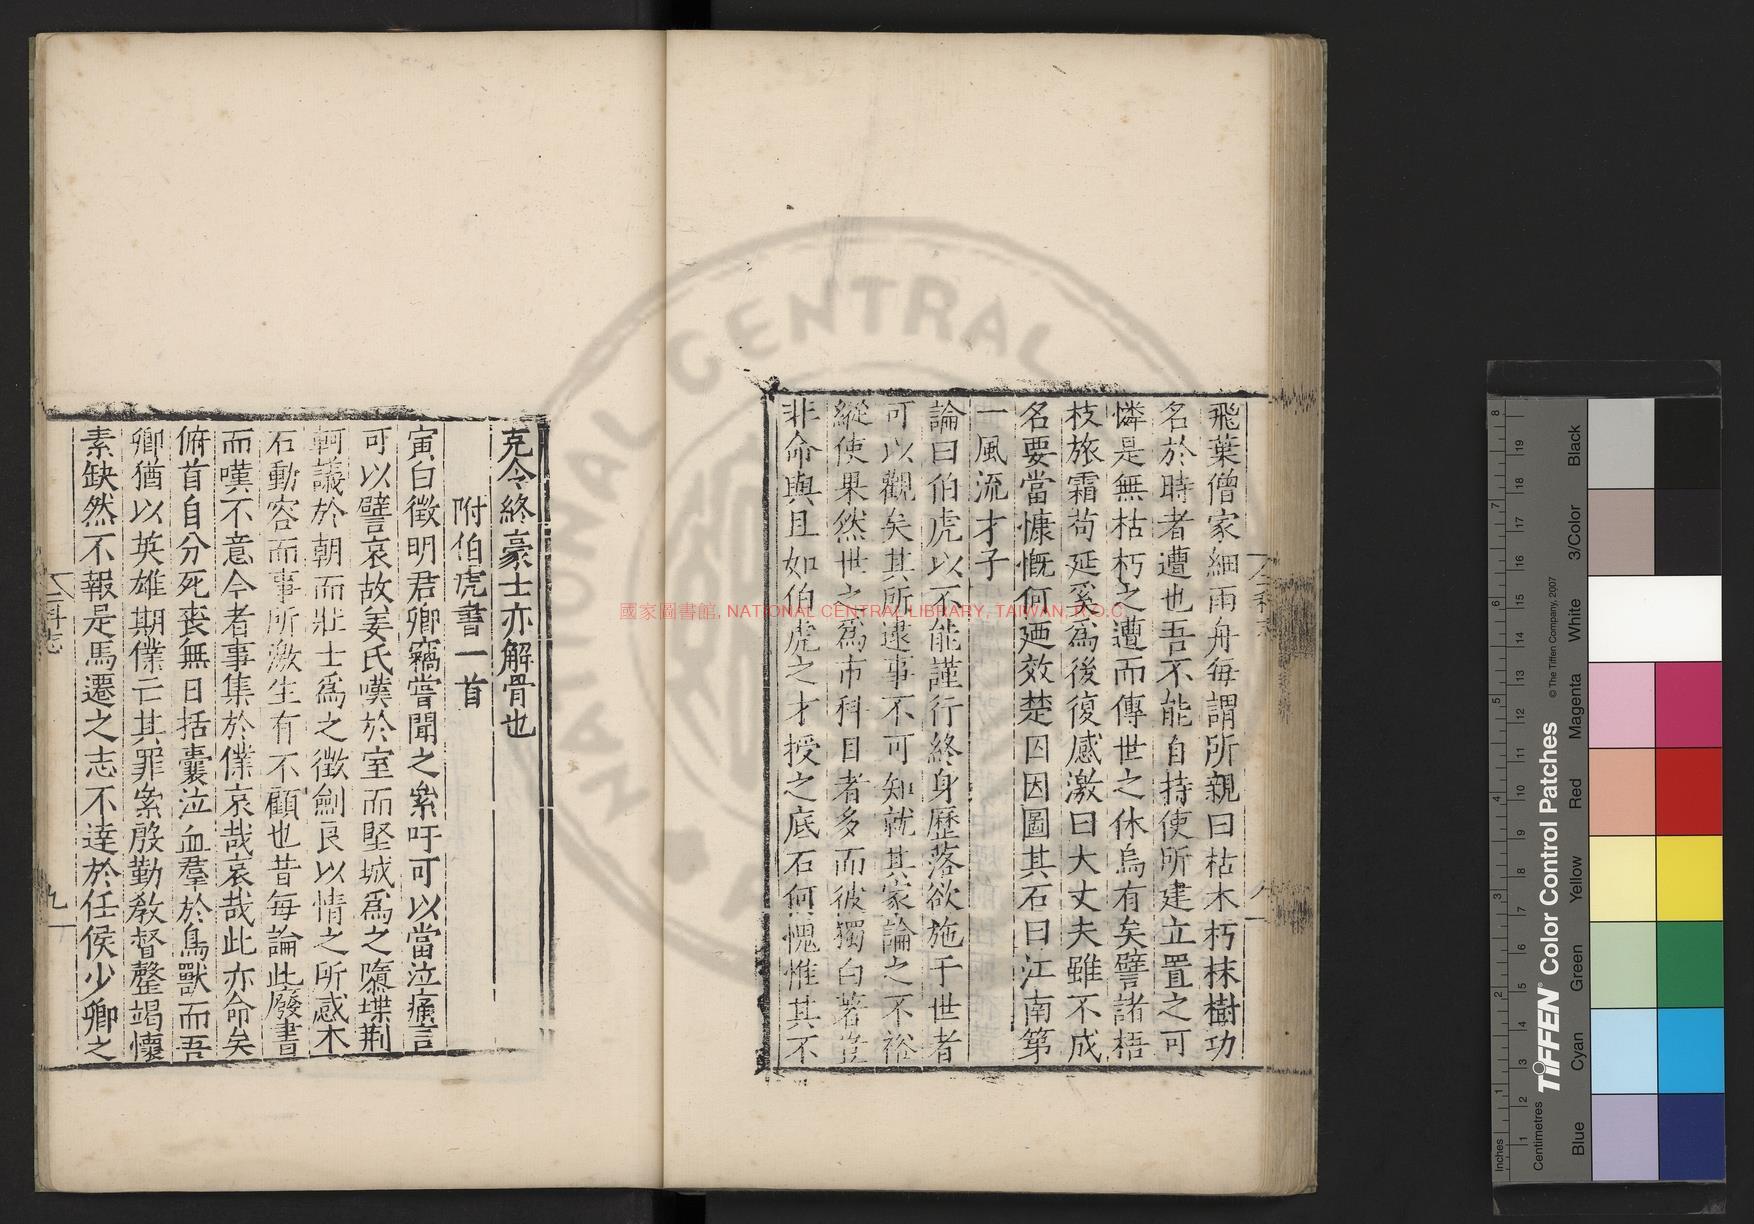 飛葉僧家細雨舟每謂所親曰枯木朽株樹功
名於時者遭也吾不能自持使所建立置之可
憐是無枯朽之遭而傳世之休烏有矣譬諸梧
枝旅霜苟延奚為後復感激曰大丈夫雖不成
名要當慷慨何廼效楚囚因圖其石曰江南第
一風流才子
論曰伯虎以不能謹行終身歷落欲施于世者
可以觀矣其所逮事不可知就其家論之不裕
縱使果然世之為市科目者多而彼獨白著豈
非命與且如伯虎之才授之底石何愧惟其不
克令終豪士亦解骨也
附伯虎書一首
寅白徵明君卿竊嘗聞之纍吁可以當泣痛言
可以譬哀故姜氏嘆於室而堅城為之隳堞荆
軻議於朝而壯士為之徵劍良以情之所感木
石動容而事所激生有不顧也昔每論此廢書
而嘆不意今者事集於僕哀哉哀哉此亦命矣
俯首自分死喪無日括囊泣血羣於鳥獸而吾
卿猶以英雄期僕亡其罪纍殷勤敎督罄竭懷
素缺然不報是馬遷之志不達於任侯少卿之
九
國家圖書館, NATIONAL CENTRAL LIBRARY, TAIWAN, R.O.C
NATIONAL CENTRAL
Inches
Centimetres
TIFFEN® Color Control Patches
© The Tiffen Company, 2007
Blue
Cyan
Green
Yellow
Red
Magenta
White
3/Color
Black